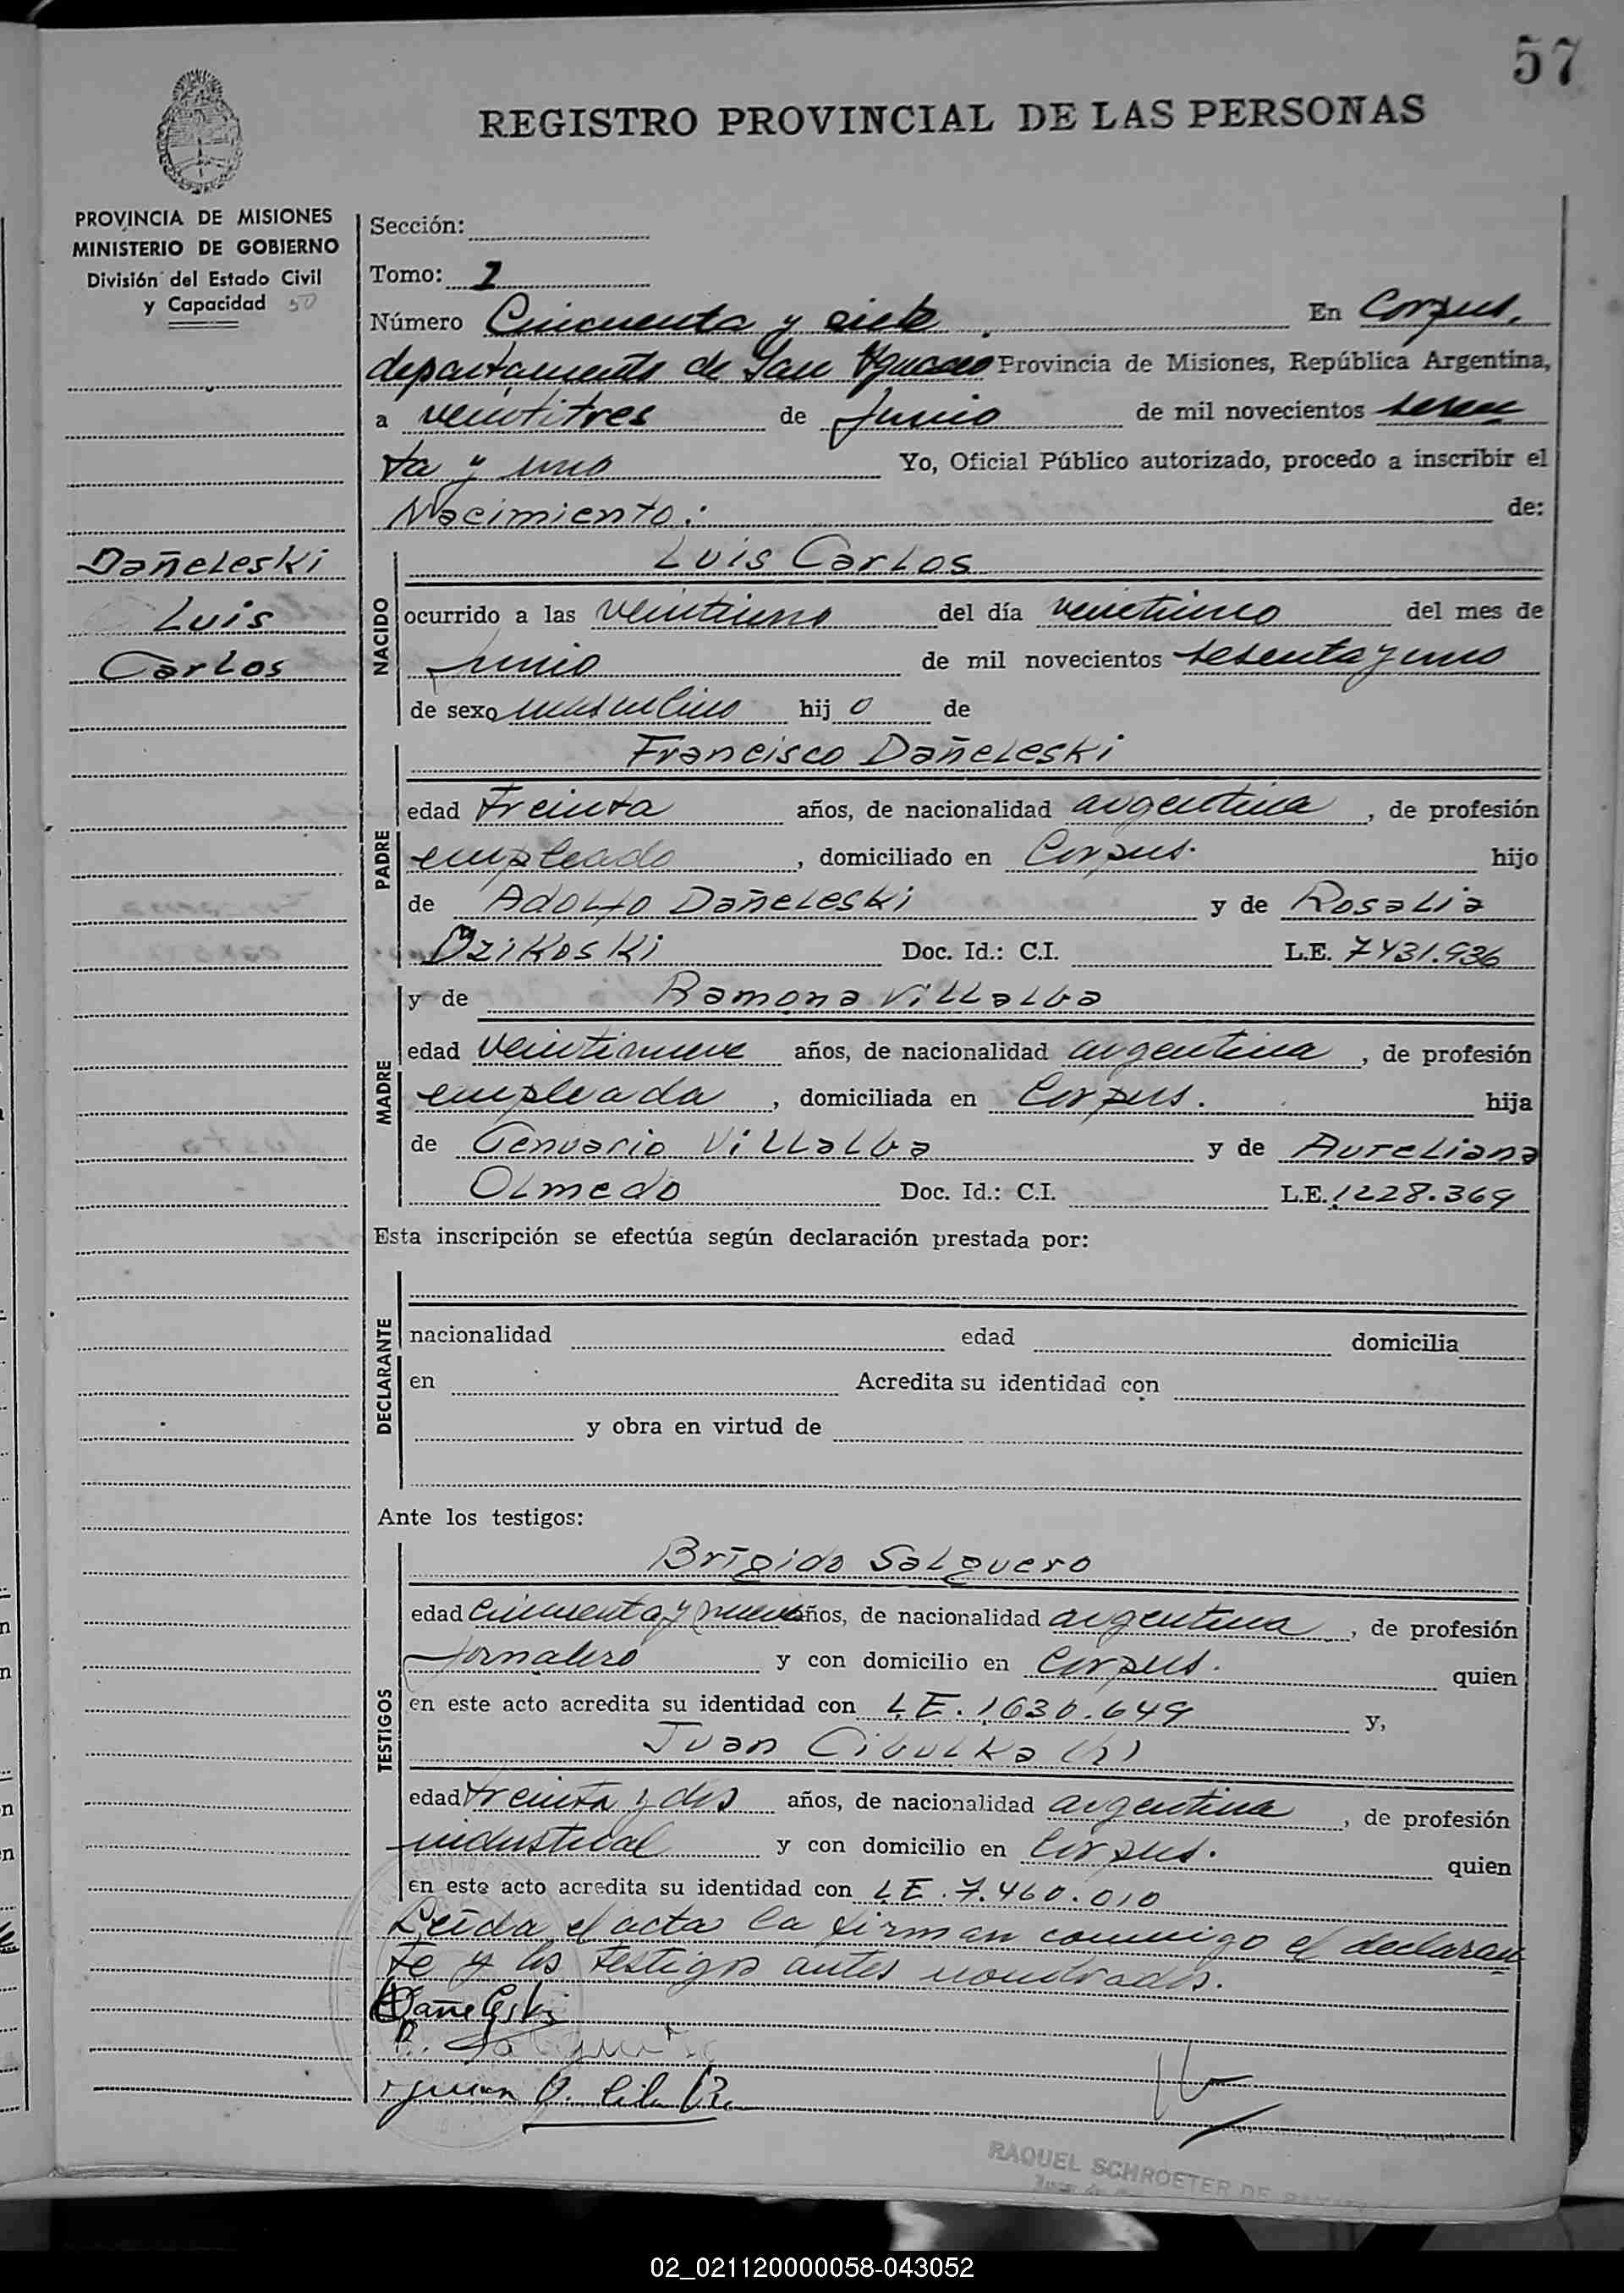 57
REGISTRO PROVINCIAL DE LAS PERSONAS
PROVINCIA DE MISIONES
MINISTERIO DE GOBIERNO
División del Estado Civil
y Capacidad 50
Dañeleski
Luis
Carlos
Sección:
Tomo: 1
Número Cincuenta y siete En Corpus,
departamento de San Ignacio Provincia de Misiones, República Argentina,
a veintitres de Junio de mil novecientos sesen
ta y uno Yo, Oficial Público autorizado, procedo a inscribir el
Nacimiento: de:
NACIDO
Luis Carlos
ocurrido a las veintiuno del día veintiuno del mes de
junio de mil novecientos sesenta y uno
de sexo masculino hij o de
PADRE
Francisco Dañeleski
edad treinta años, de nacionalidad argentina, de profesión
empleado, domiciliado en Corpus. hijo
de Adolfo Dañeleski y de Rosalia
Dzikoski Doc. Id.: C.I. L.E. 7431.936
MADRE
y de Ramona Villalba
edad veintinueve años, de nacionalidad argentina, de profesión
empleada, domiciliada en Corpus. hija
de Genuario Villalba y de Aureliana
Olmedo Doc. Id.: C.I. L.E. 1228.369
Esta inscripción se efectúa según declaración prestada por:
DECLARANTE
nacionalidad edad domicilia
en Acredita su identidad con
y obra en virtud de
Ante los testigos:
TESTIGOS
Brígido Salguero
edad cincuenta y nueve años, de nacionalidad argentina, de profesión
jornalero y con domicilio en Corpus. quien
en este acto acredita su identidad con L.E. 1630.649 y,
Juan Cibulka (h)
edad treinta y dos años, de nacionalidad argentina, de profesión
industrial y con domicilio en Corpus. quien
en este acto acredita su identidad con L.E. 7.460.010
Leída el acta la firman conmigo el declaran
te y los testigos antes nombrados.
Dañeleski
RAQUEL SCHROETER DE
02_021120000058-043052